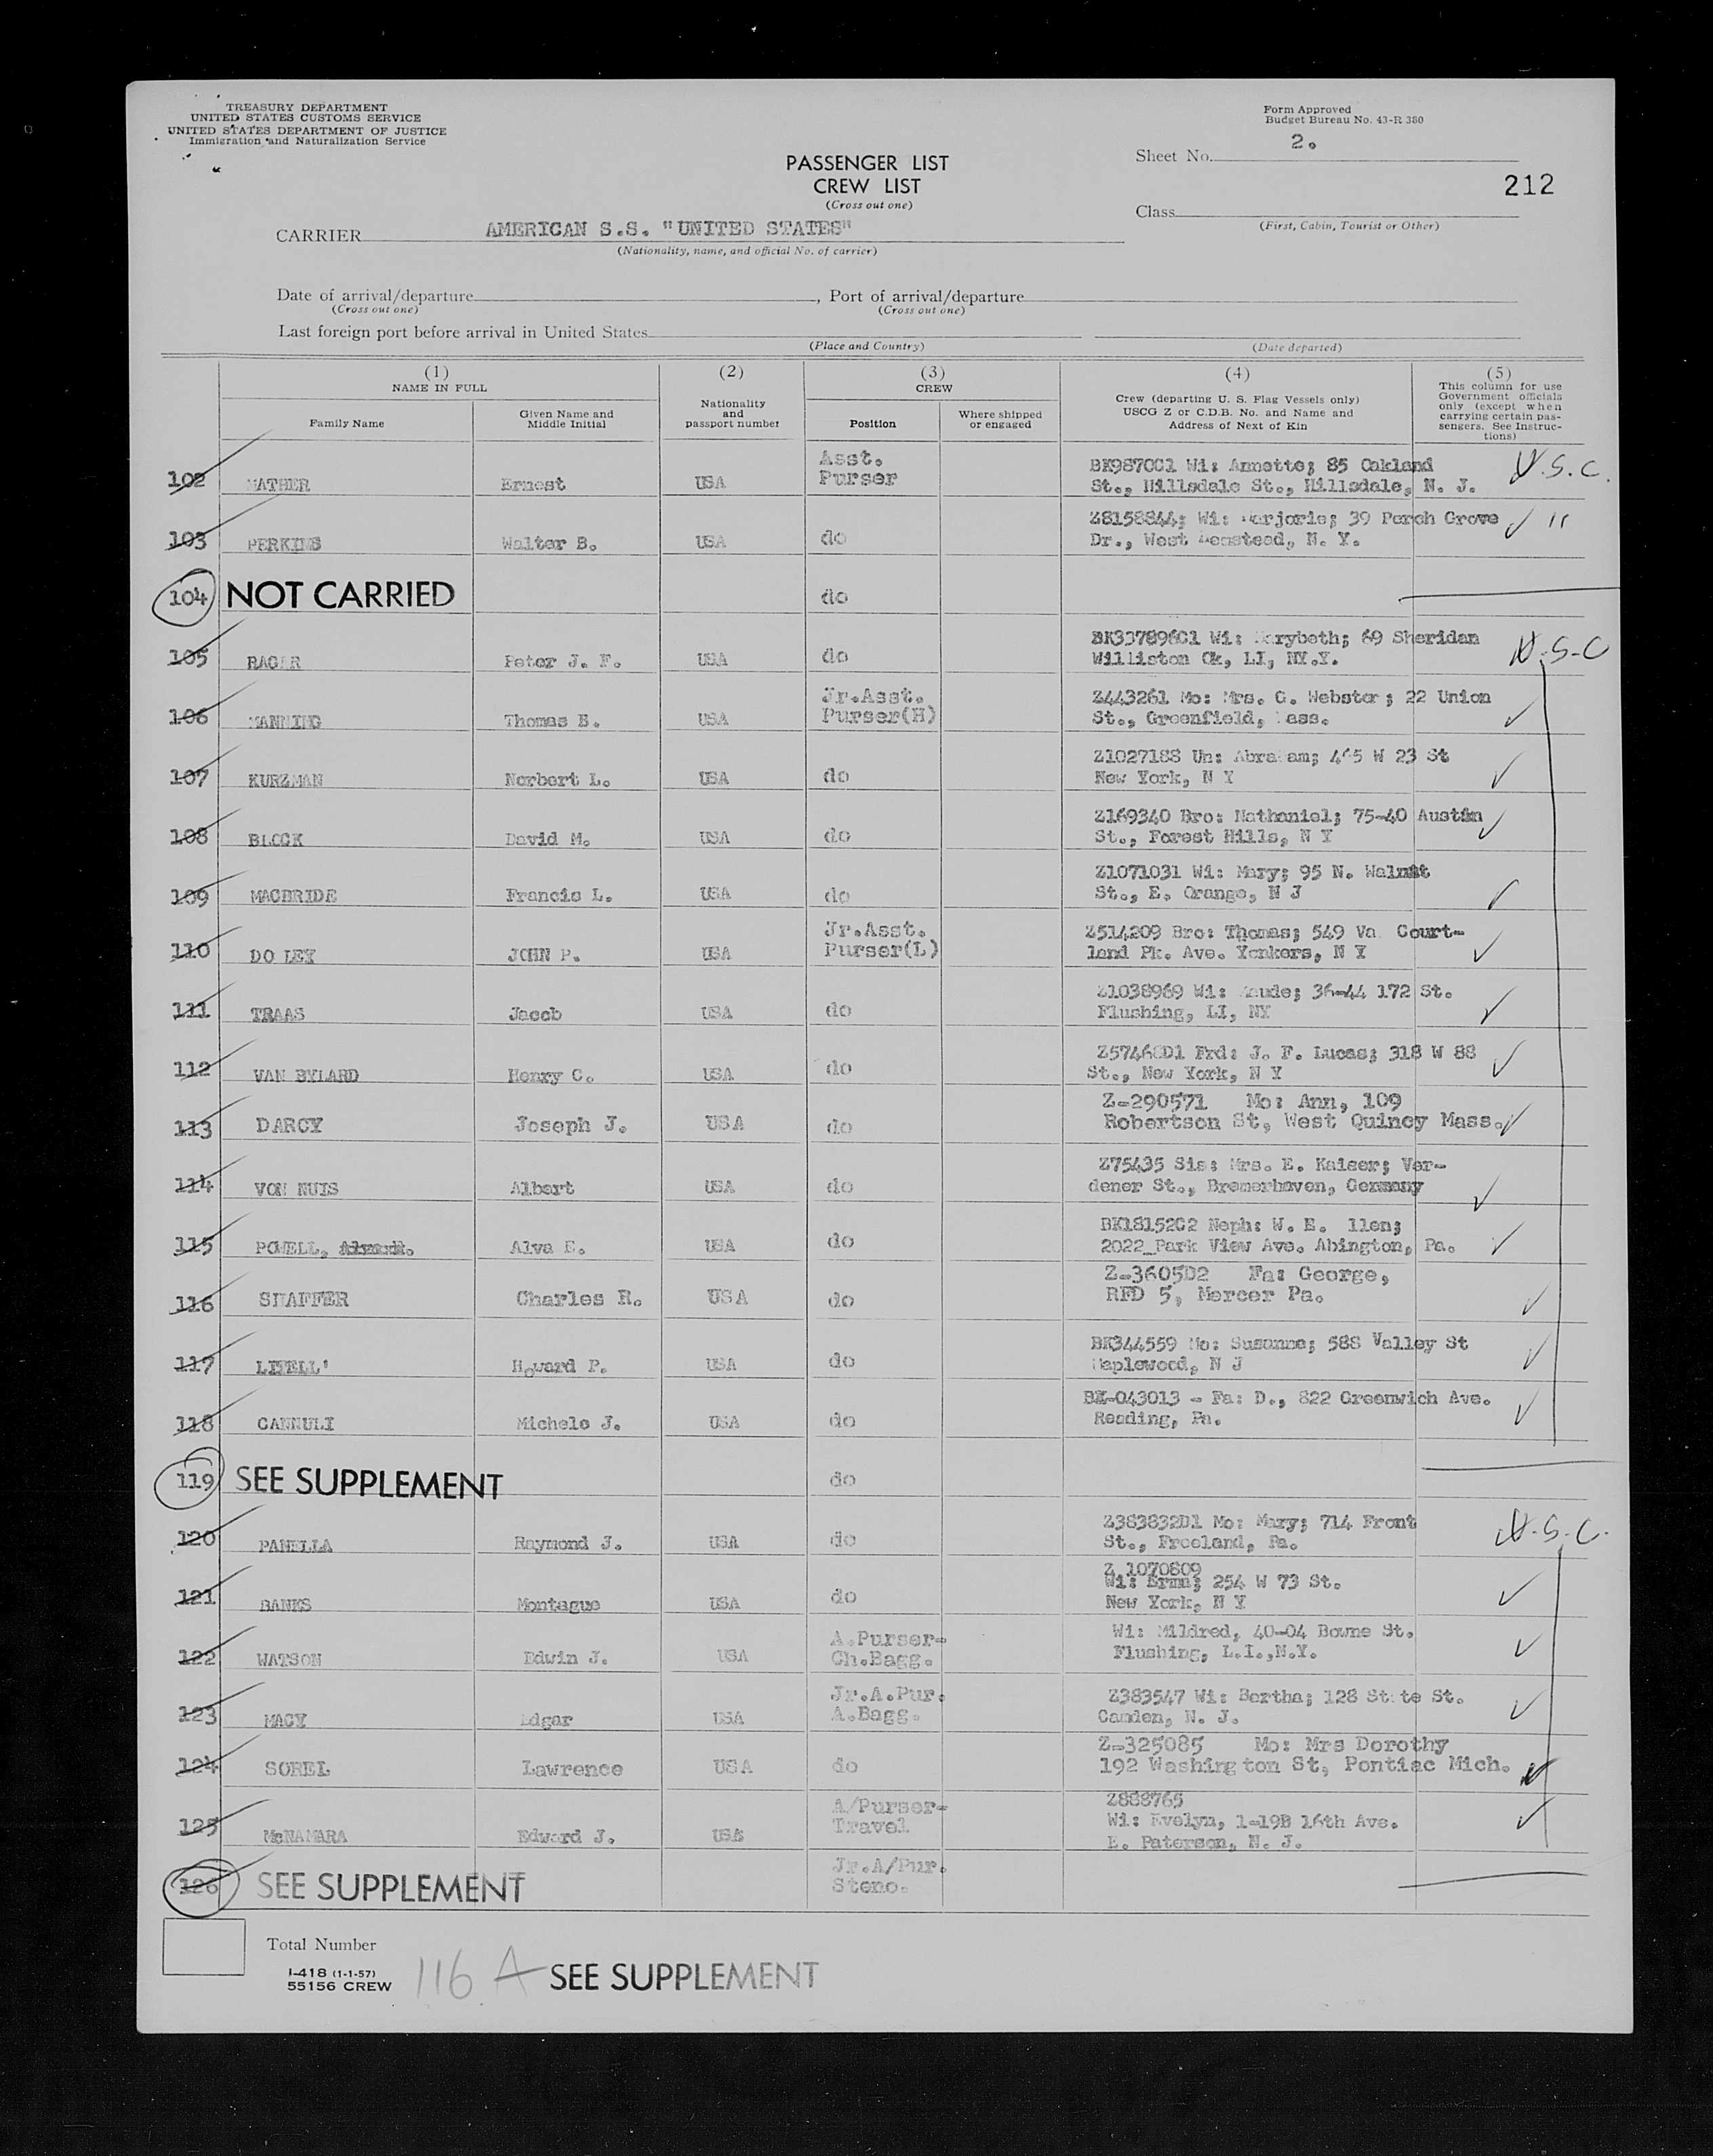 TREASURY DEPARTMENT
UNITED STATES CUSTOMS SERVICE
UNITED STATES DEPARTMENT OF JUSTICE
Immigration and Naturalization Service
Form Approved
Budget Bureau No. 43-R 380
Sheet No. 2.
PASSENGER LIST
CREW LIST
(Cross out one)
212
Class
(First, Cabin, Tourist or Other)
CARRIER AMERICAN S.S. "UNITED STATES"
(Nationality, name, and official No. of carrier)
Date of arrival/departure , Port of arrival/departure
(Cross out one) (Cross out one)
Last foreign port before arrival in United States
(Place and Country) (Date departed)
(1) NAME IN FULL
Family Name
Given Name and Middle Initial
(2)
Nationality and passport number
(3) CREW
Position
Where shipped or engaged
(4)
Crew (departing U. S. Flag Vessels only)
USCG Z or C.D.B. No. and Name and
Address of Next of Kin
(5)
This column for use
Government officials
only (except when
carrying certain pas-
sengers. See Instruc-
tions)
102 MATHER Ernest USA Asst. Purser BK987001 Wi: Annette; 85 Oakland U.S.C.
St., Hillsdale St., Hillsdale, N. J.
103 PERKINS Walter B. USA do Z8158844; Wi: Marjorie; 39 Perch Grove "
Dr., West Hempstead, N. Y.
104 NOT CARRIED do
105 RAGER Peter J. F. USA do Wi: Marybeth; 69 Sheridan U.S.C
Williston Ok, LI, NY.Y.
106 MANNING Thomas B. USA Jr.Asst. Purser(H) Z443261 Mo: Mrs. G. Webster; 22 Union
St., Greenfield, Mass.
107 KURZMAN Norbert L. USA do Z1027188 Un: Abraham; W 23 St
New York, N Y
108 BLOCK David M. USA do Z169340 Bro: Nathaniel; 75-40 Austin
St., Forest Hills, N Y
109 MACBRIDE Francis L. USA do Z1071031 Wi: Mary; 95 N. Walnut
St., E. Orange, N J
110 DO LEY JOHN P. USA Jr.Asst. Purser(L) Z514209 Bro: Thomas; 549 Va Court-
land Pk. Ave. Yonkers, N Y
111 TRAAS Jacob USA do Z1038969 Wi: Maude; 36-44 172 St.
Flushing, LI, NY
112 VAN BYLARD Henry C. USA do Frd: J. F. Lucas; 318 W 88
St., New York, N Y
113 DARCY Joseph J. USA do Z-290571 Mo: Ann, 109
Robertson St, West Quincy Mass.
114 VON NUIS Albert USA do Z75435 Sis: Mrs. E. Kaiser; Ver-
dener St., Bremerhaven, Germany
115 POWELL, Alva E. USA do BK1815202 Neph: W. E. llen;
2022 Park View Ave. Abington, Pa.
116 SHAFFER Charles R. USA do Z-3605D2 Fa: George,
RFD 5, Mercer Pa.
117 Howard P. USA do BK344559 Mo: Susanne; 588 Valley St
Maplewood, N J
118 CANNULI Michele J. USA do BK-043013 - Fa: D., 822 Greenwich Ave.
Reading, Pa.
119 SEE SUPPLEMENT do
120 PANELLA Raymond J. USA do Z383832D1 Mo: Mary; 714 Front U.S.C.
St., Freeland, Pa.
121 BANKS Montague USA do Z 1070809
Wi: Erma; 254 W 73 St.
New York, N Y
122 WATSON Edwin J. USA A.Purser- Ch.Bagg. Wi: Mildred, 40-04 Bowne St.
Flushing, L.I.,N.Y.
123 MACY Edgar USA Jr.A.Pur. A.Bagg. Z383547 Wi: Bertha; 128 State St.
Camden, N. J.
124 SOREL Lawrence USA do Z-325085 Mo: Mrs Dorothy
192 Washington St, Pontiac Mich.
125 McNAMARA Edward J. USA A/Purser- Travel Z888765
Wi: Evelyn, 1-19B 16th Ave.
E. Paterson, N. J.
126 SEE SUPPLEMENT Jr.A/Pur. Steno.
Total Number
I-418 (1-1-57)
55156 CREW
116 A SEE SUPPLEMENT